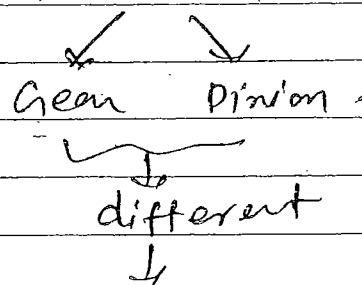 Gear Pinion
different